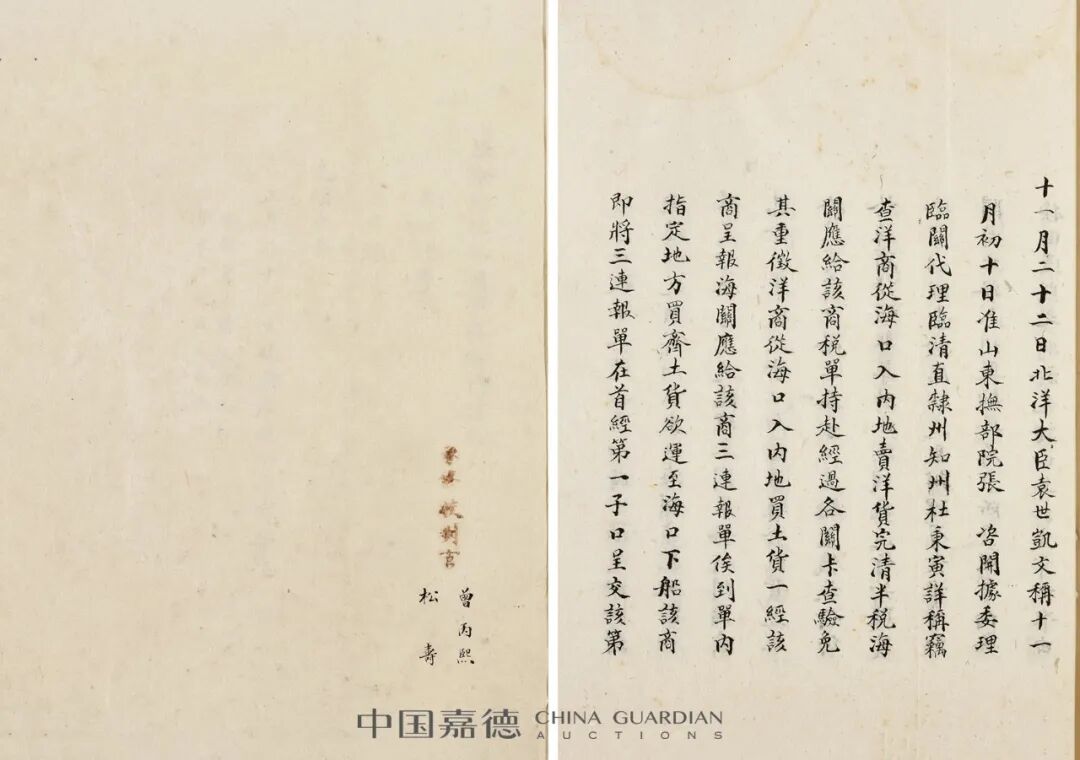 十一月二十二日北洋大臣袁世凱文稱十一
月初十日准山東撫部院張 咨開據委理
臨關代理臨清直隸州知州杜秉寅詳稱竊
查洋商從海口入內地賣洋貨完清半稅海
關應給該商稅單持赴經過各關卡查驗免
其重徵洋商從海口入內地買土貨一經該
商呈報海關應給該商三連報單俟到單內
指定地方買齊土貨欲運至海口下船該商
即將三連報單在首經第一子口呈交該第
曾丙熙
校對官
松壽
中国嘉德 CHINA GUARDIAN
AUCTIONS